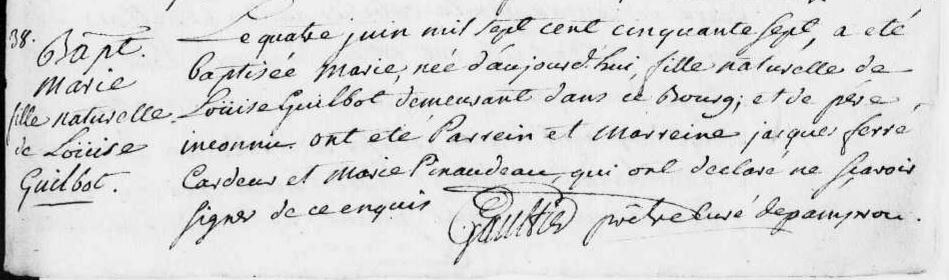 38.
Bapt.
Marie
fille naturelle
de Loüise
Guilbot.
Le quatre juin mil sept cent cinquante sept, a eté
baptisée Marie, née d'aujourd'hui, fille naturelle de
Loüise Guilbot demeurant dans ce Bourg; et de père
inconnu. ont eté Parrein et Marreine jacques ferré
Cardeur et Marie Pinaudeau, qui ont declaré ne sçavoir
signer de ce enquis Gaultier prêtre curé de pamprou.